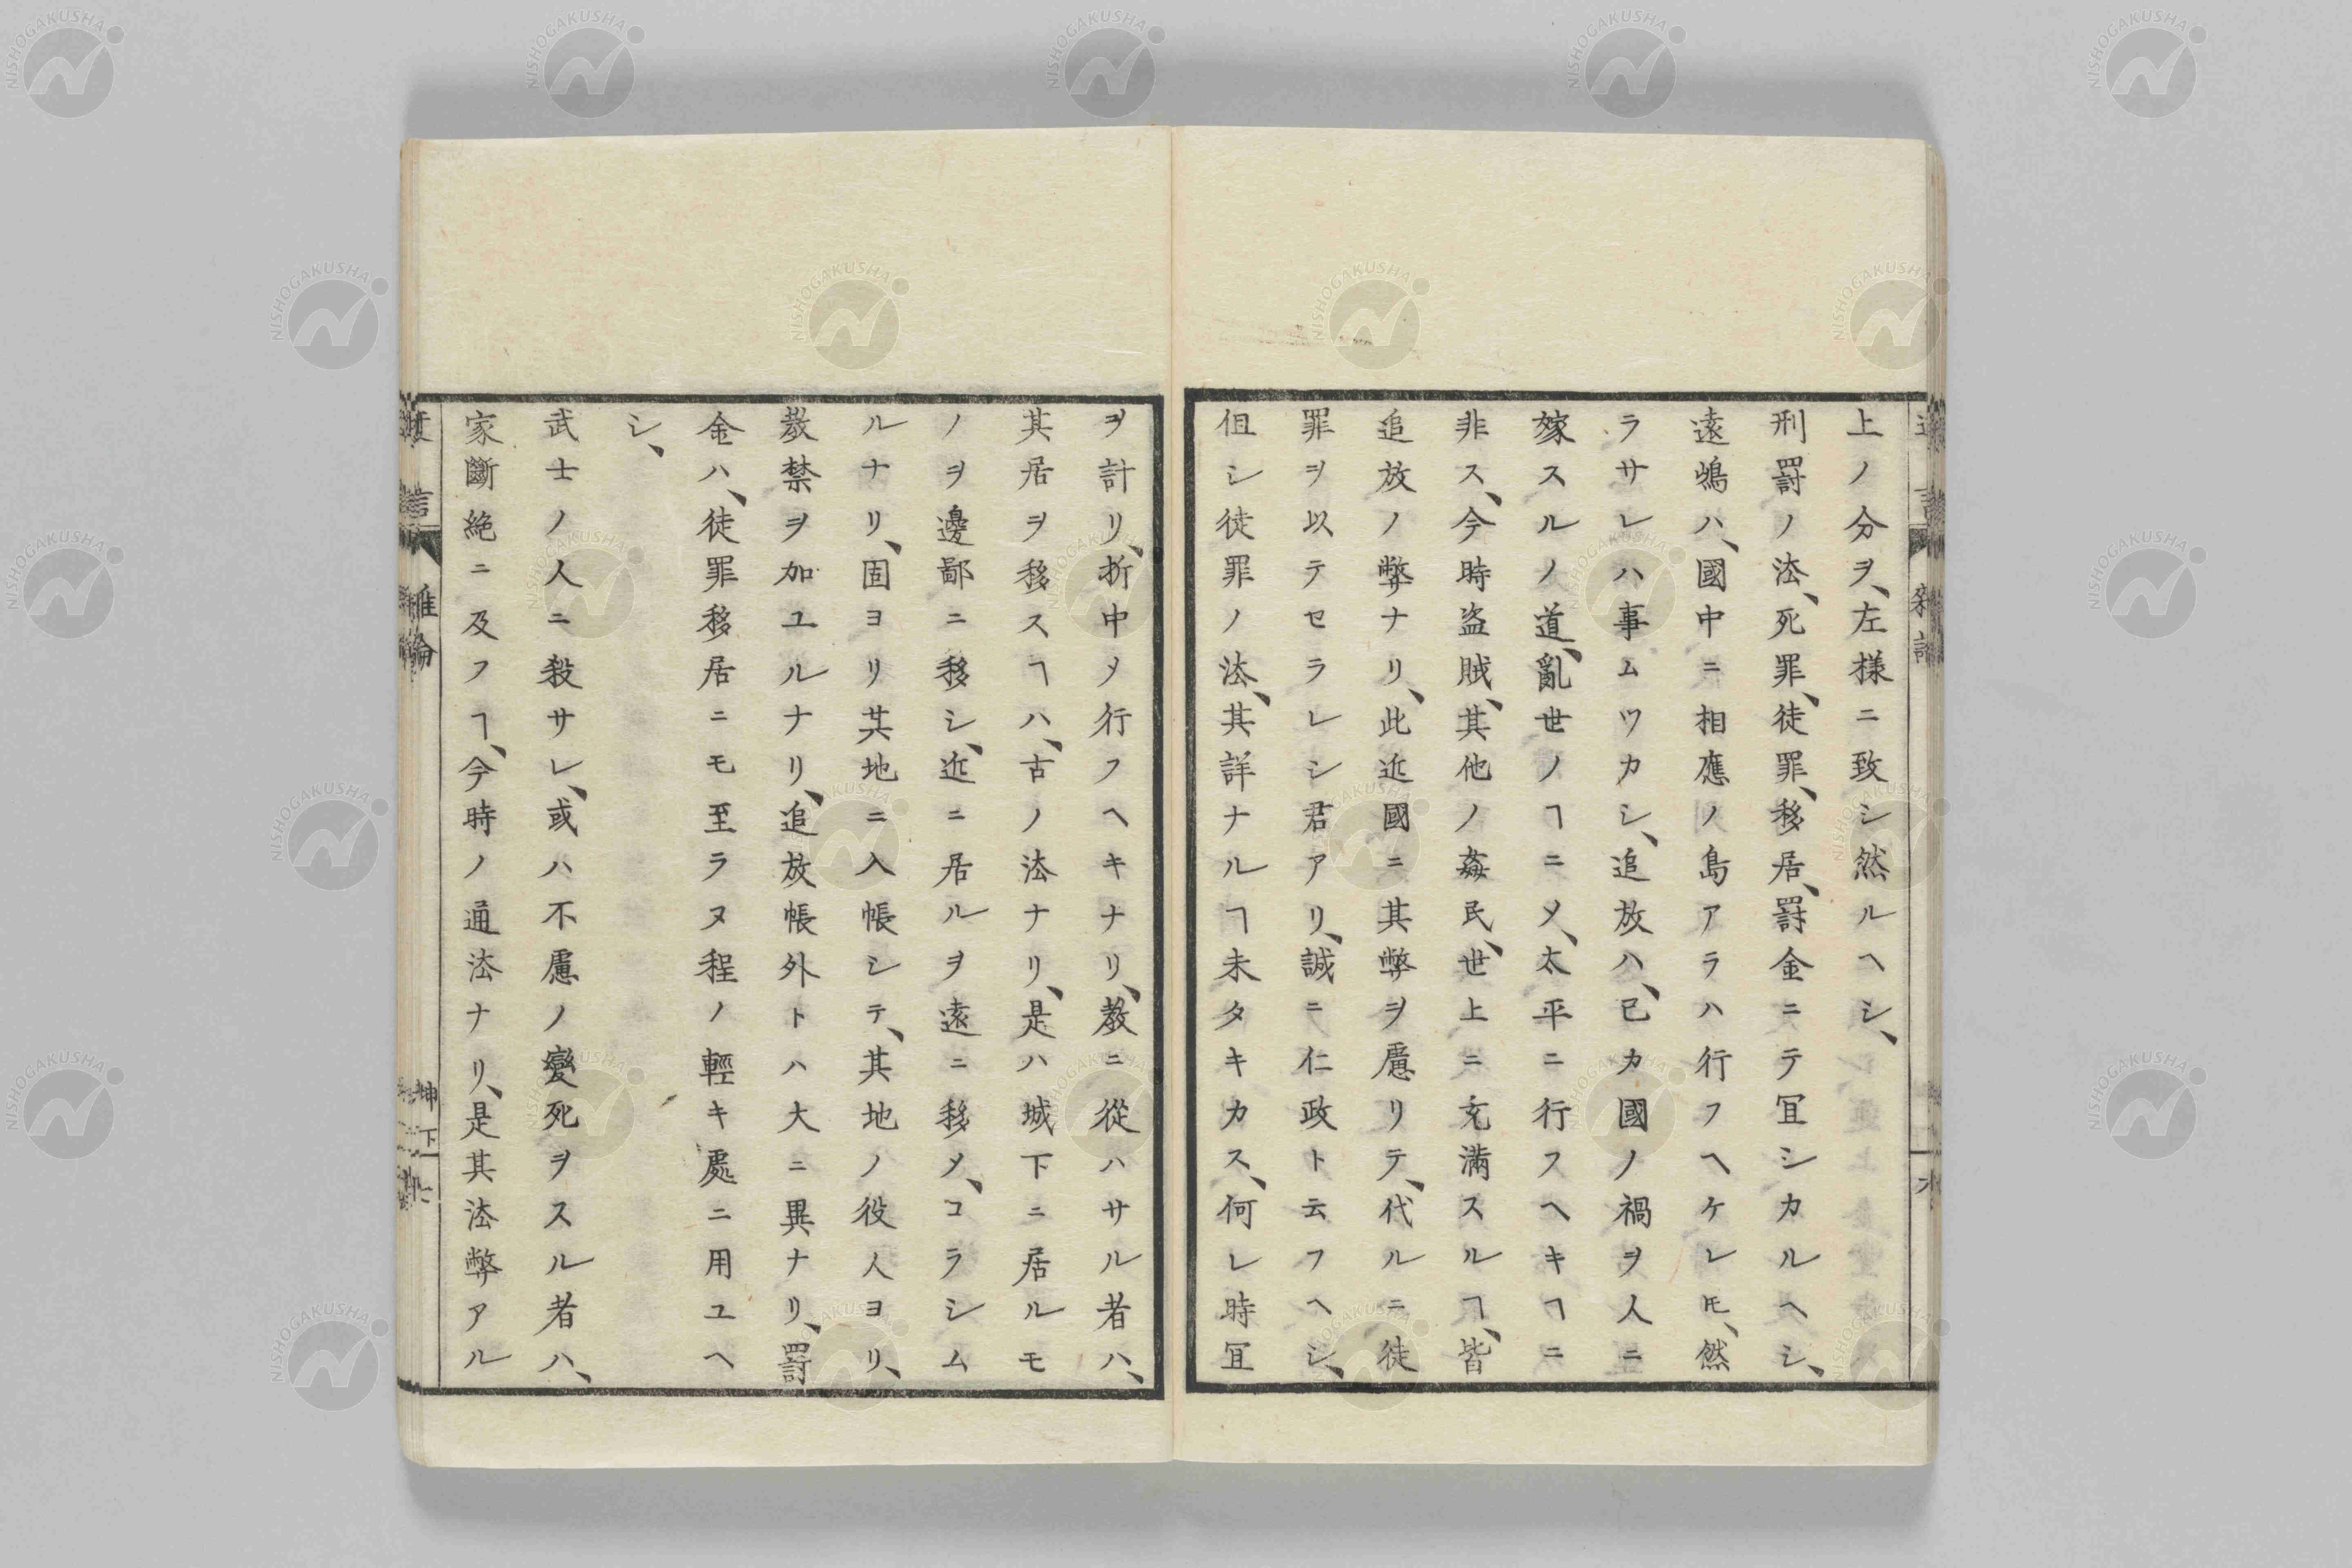 上ノ分ヲ、左様ニ致シ然ルヘシ、
刑罰ノ法、死罪、徒罪、移居、罰金ニテ冝シカルヘシ、
遠嶋ハ、國中ニ相應ノ島アラハ行フヘケレ𪜈、然
ラサレハ事ムツカシ、追放ハ、已カ國ノ禍ヲ人ニ
嫁スルノ道、亂世ノヿニメ、太平ニ行フヘキヿニ
非ス、今時盗賊、其他ノ姦民、世上ニ充滿スルヿ、皆
追放ノ弊ナリ、此近國ニ其弊ヲ慮リテ、代ルニ徒
罪ヲ以テセラレシ君アリ、誠ニ仁政ト云フヘシ、
但シ徒罪ノ法、其詳ナルヿ未タキカス、何レ時冝
ヲ計リ、折中メ行フヘキナリ、敎ニ從ハサル者ハ、
其居ヲ移スヿハ、古ノ法ナリ、是ハ城下ニ居ルモ
ノヲ邊鄙ニ移シ、近ニ居ルヲ遠ニ移メ、コラシム
ルナリ、固ヨリ其地ニ入帳シテ、其地ノ役人ヨリ、
敎禁ヲ加ユルナリ、追放帳外トハ大ニ異ナリ、罰
金ハ、徒罪移居ニモ至ラヌ程ノ輕キ處ニ用ユヘ
シ、
武士ノ人ニ殺サレ、或ハ不慮ノ變死ヲスル者ハ、
家斷絶ニ及フヿ、今時ノ通法ナリ、是其法弊アル
坤下